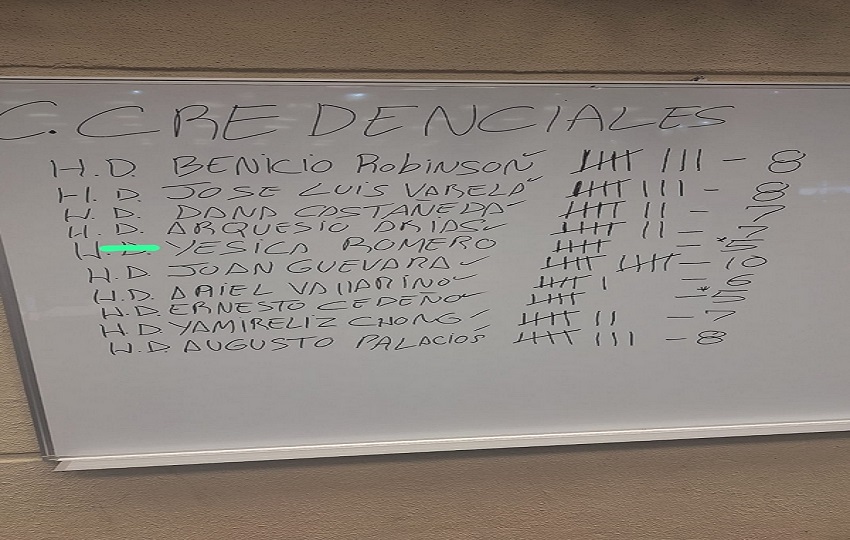 C. CREDENCIALES
H.D. BENICIO ROBINSON ✓ 𝍸 III - 8
H.D. JOSE LUIS VARELA ✓ 𝍸 III - 8
H.D. DANA CASTAÑEDA ✓ 𝍸 II - 7
H.D. ARQUESIO ARIAS ✓ 𝍸 II - 7
H.D. YESICA ROMERO 𝍸 - *5
H.D. JUAN GUEVARA ✓ 𝍸 𝍸 - 10
H.D. ARIEL VALLARINO ✓ 𝍸 I - 6
H.D. ERNESTO CEDEÑO ✓ 𝍸 - *5
H.D. YAMIRELIZ CHONG ✓ 𝍸 II - 7
H.D. AUGUSTO PALACIOS ✓ 𝍸 III - 8